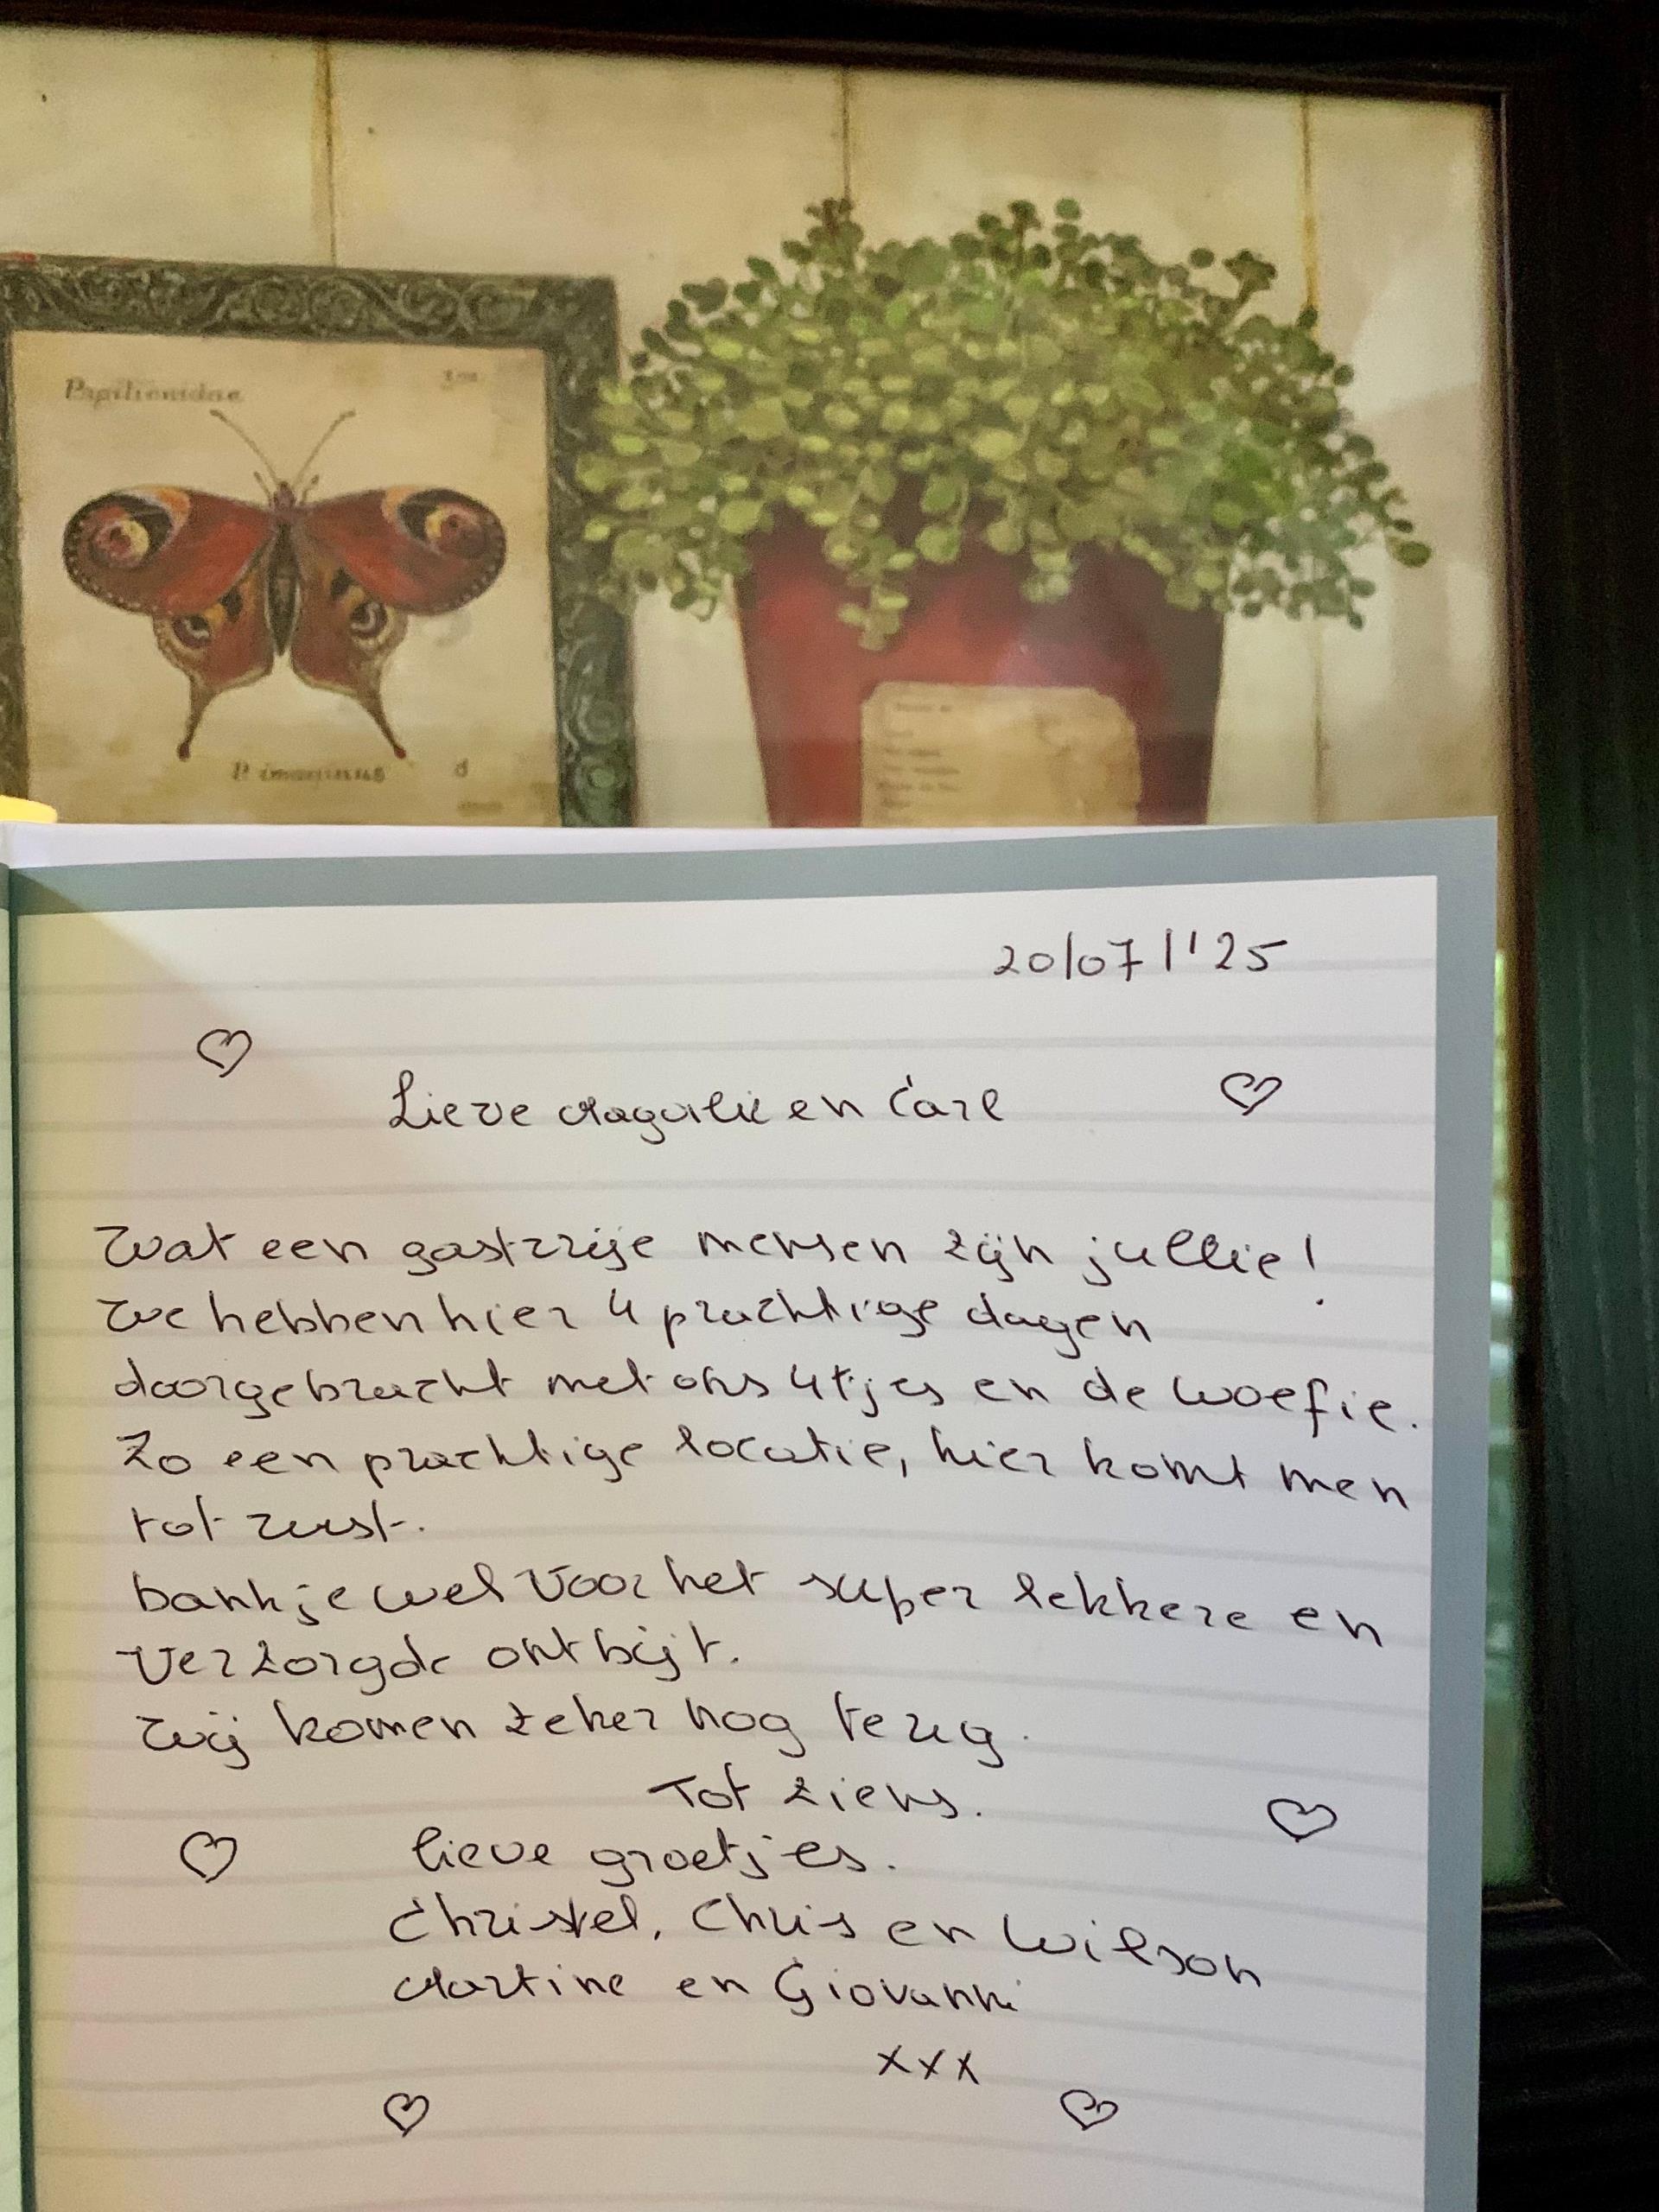 Papilionidae
20/07/'25
Lieve Magalie en Carl
Wat een gastvrije mensen zijn jullie!
We hebben hier 4 prachtige dagen
doorgebracht met ons 4tjes en de woefie.
Zo een prachtige locatie, hier komt men
tot rust.
Dankjewel voor het super lekkere en
verzorgde ontbijt.
Wij komen zeker nog terug.
Tot ziens.
lieve groetjes.
Christel, Chris en Wilson
Martine en Giovanni
xxx